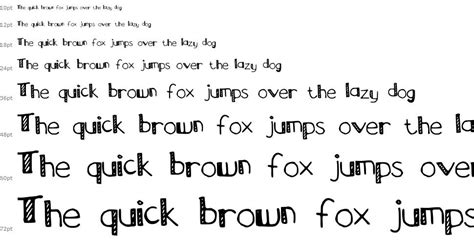 10pt The quick brown fox jumps over the lazy dog
12pt The quick brown fox jumps over the lazy dog
18pt The quick brown fox jumps over the lazy dog
24pt The quick brown fox jumps over the lazy dog
36pt The quick brown fox jumps over the lazy dog
48pt The quick brown fox jumps over the la
60pt The quick brown fox jumps over
72pt The quick brown fox jumps